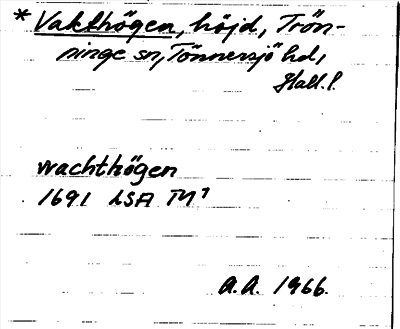 * Vakthögen, höjd, Trön-
ninge sn, Tönnersjö hd,
Hall. l.
wachthögen
1691 LSA
A.A. 1966.